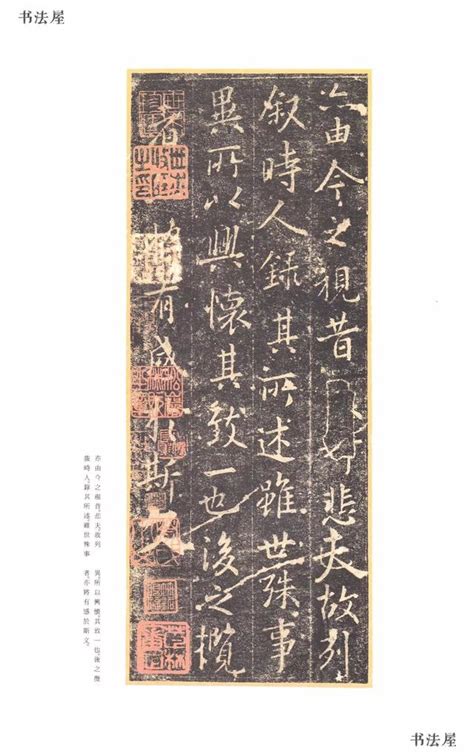 书法屋
亦由今之視昔悲夫故列
叙時人錄其所述雖世殊事
異所以興懷其致一也後之攬
者亦將有感於斯文
亦由今之視昔。悲夫。故列
叙時人。錄其所述。雖世殊事
異。所以興懷。其致一也。後之攬
者。亦將有感於斯文。
书法屋